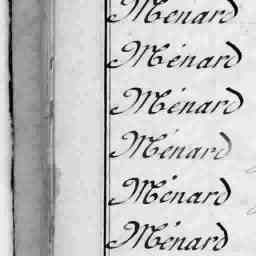 Menard
Ménard
Ménard
Ménard
Ménard
Ménard